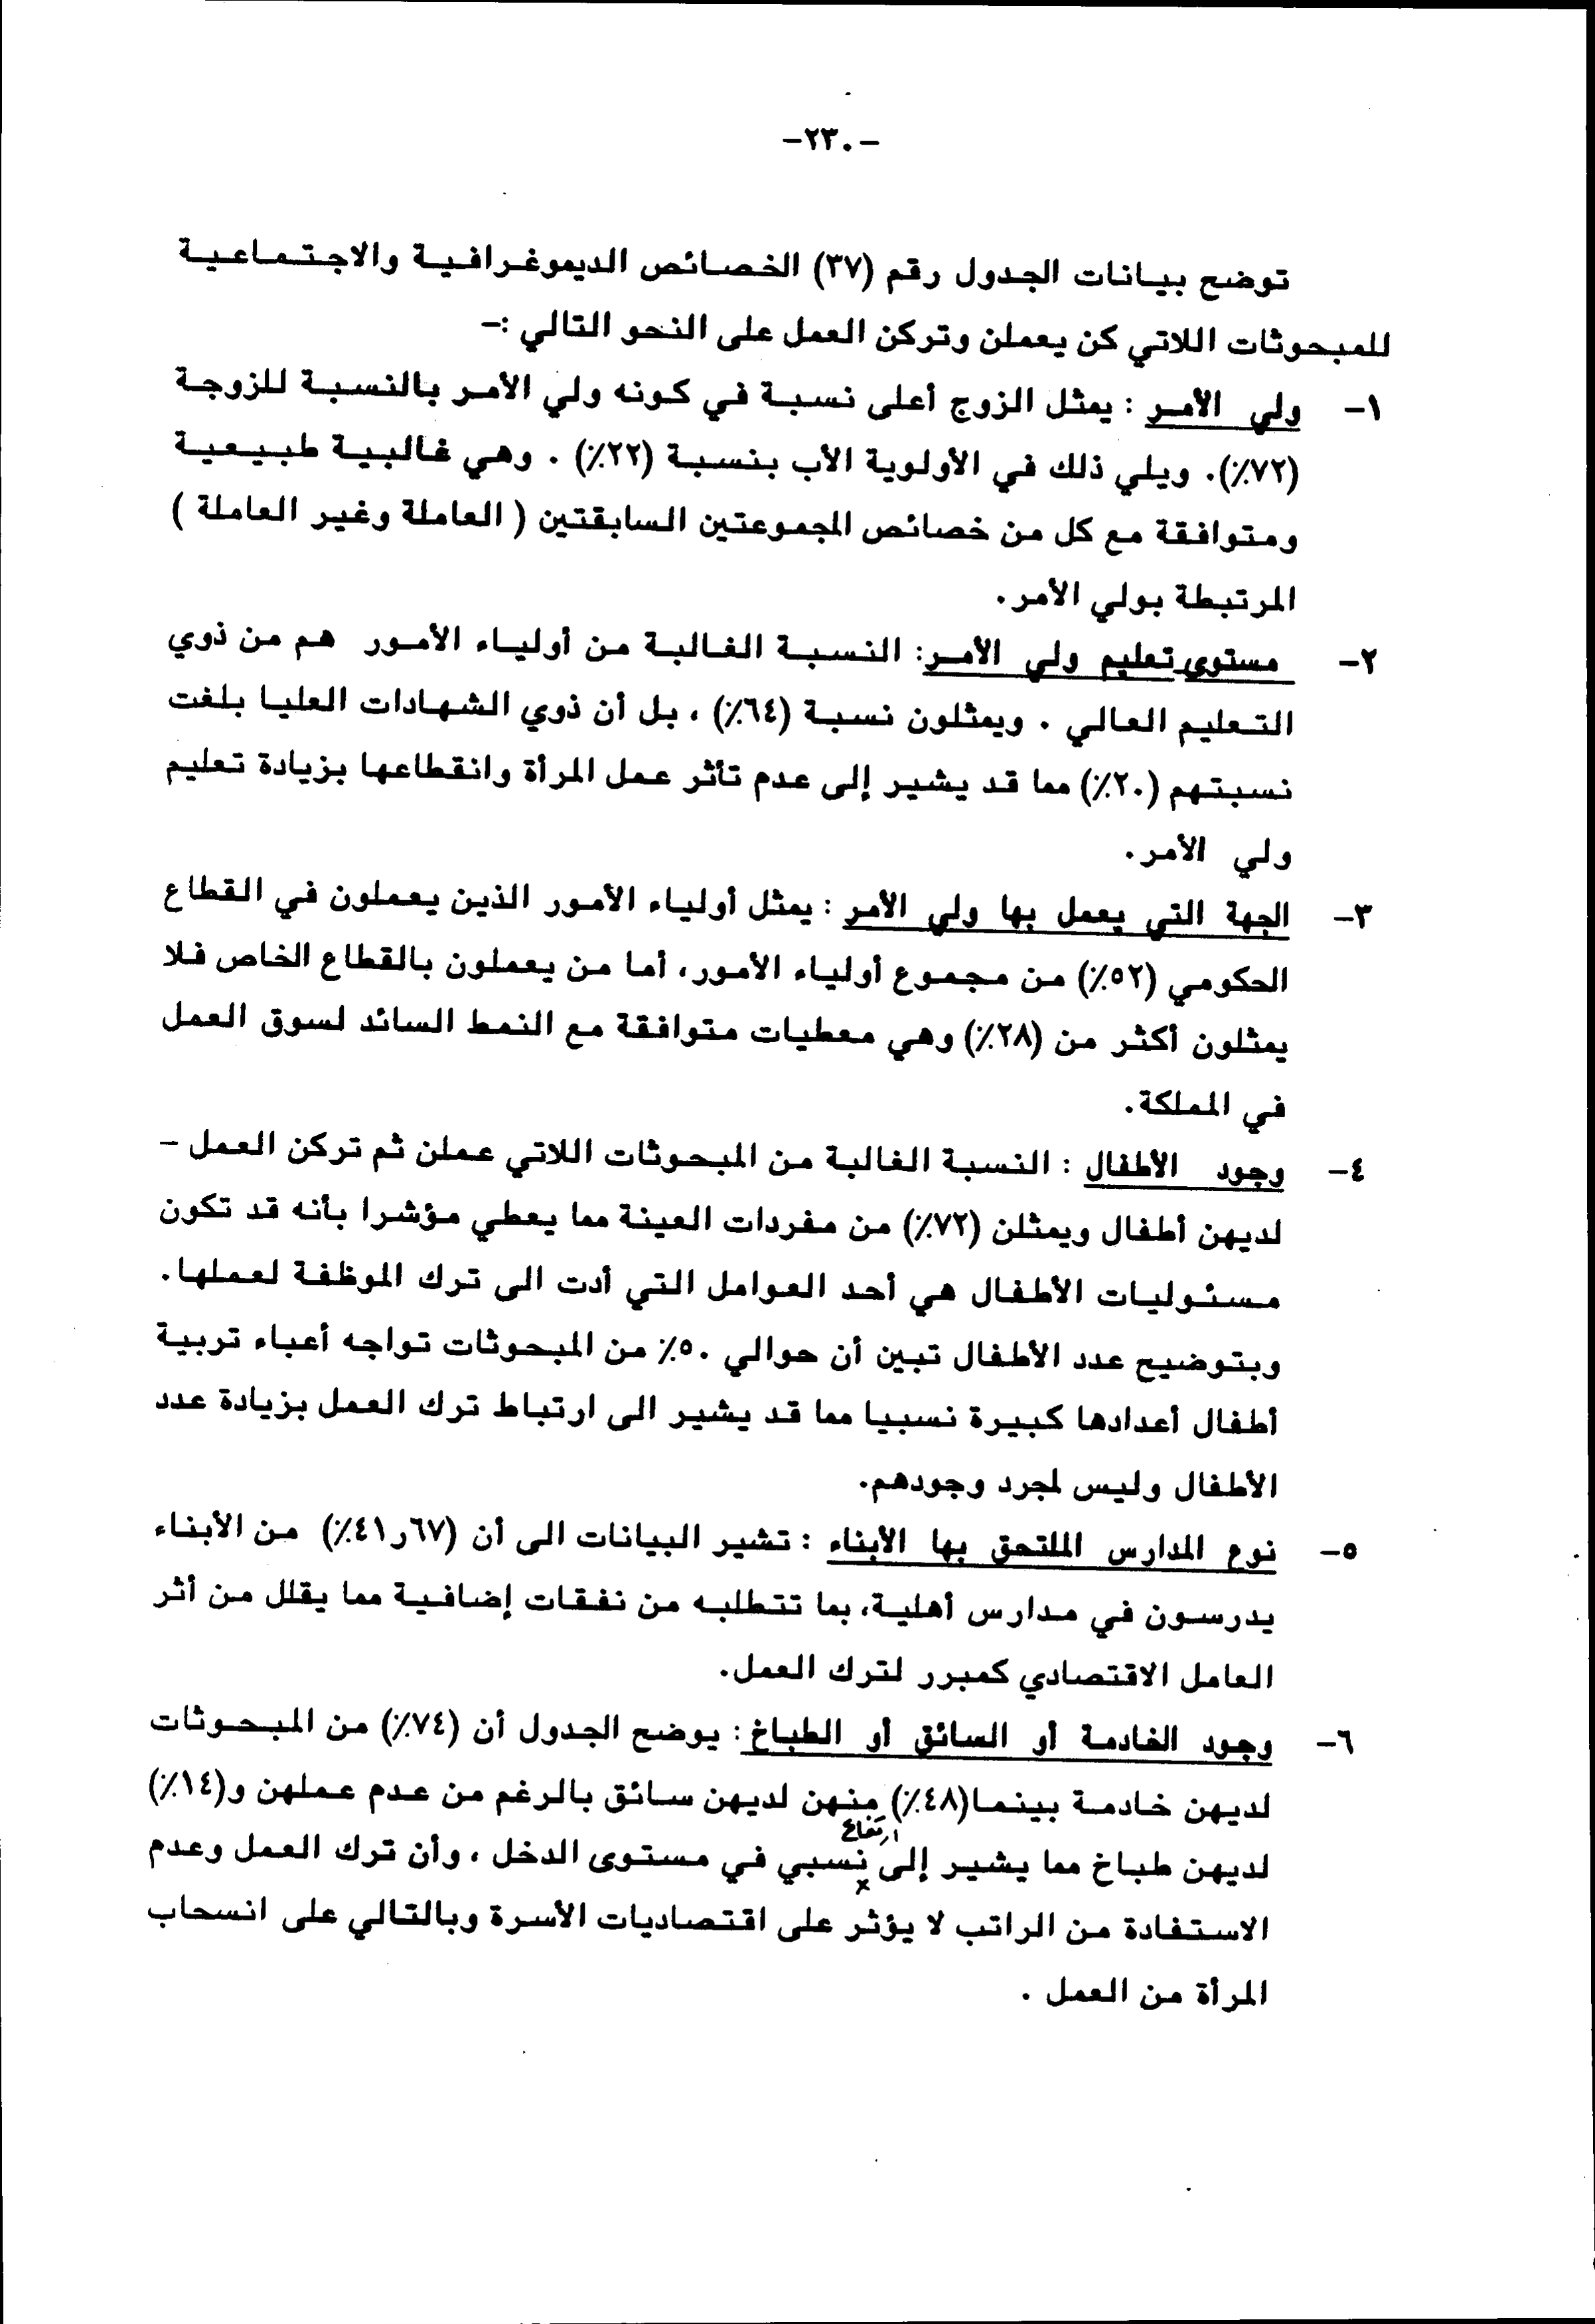 -٢٣٠-
توضح بيانات الجدول رقم (٣٧) الخصائص الديموغرافية والاجتماعية
للمبحوثات اللاتي كن يعملن وتركن العمل على النحو التالي :-
١- ولي الأمر : يمثل الزوج أعلى نسبة في كونه ولي الأمر بالنسبة للزوجة
(٧٢٪). ويلي ذلك في الأولوية الأب بنسبة (٢٢٪) . وهي غالبية طبيعية
ومتوافقة مع كل من خصائص المجموعتين السابقتين ( العاملة وغير العاملة )
المرتبطة بولي الأمر.
٢- مستوى تعليم ولي الأمر: النسبة الغالبة من أولياء الأمور هم من ذوي
التعليم العالي . ويمثلون نسبة (٦٤٪) ، بل أن ذوي الشهادات العليا بلغت
نسبتهم (٢٠٪) مما قد يشير إلى عدم تأثر عمل المرأة وانقطاعها بزيادة تعليم
ولي الأمر.
٣- الجهة التي يعمل بها ولي الأمر : يمثل أولياء الأمور الذين يعملون في القطاع
الحكومي (٥٢٪) من مجموع أولياء الأمور، أما من يعملون بالقطاع الخاص فلا
يمثلون أكثر من (٢٨٪) وهي معطيات متوافقة مع النمط السائد لسوق العمل
في المملكة.
٤- وجود الأطفال : النسبة الغالبة من المبحوثات اللاتي عملن ثم تركن العمل -
لديهن أطفال ويمثلن (٧٢٪) من مفردات العينة مما يعطي مؤشرا بأنه قد تكون
مسئوليات الأطفال هي أحد العوامل التي أدت الى ترك الموظفة لعملها.
وبتوضيح عدد الأطفال تبين أن حوالي ٥٠٪ من المبحوثات تواجه أعباء تربية
أطفال أعدادها كبيرة نسبيا مما قد يشير الى ارتباط ترك العمل بزيادة عدد
الأطفال وليس لمجرد وجودهم.
٥- نوع المدارس الملتحق بها الأبناء : تشير البيانات الى أن (٦٧ر٤١٪) من الأبناء
يدرسون في مدارس أهلية، بما تتطلبه من نفقات إضافية مما يقلل من أثر
العامل الاقتصادي كمبرر لترك العمل.
٦- وجود الخادمة أو السائق أو الطباخ : يوضح الجدول أن (٧٤٪) من المبحوثات
لديهن خادمة بينما(٤٨٪) منهن لديهن سائق بالرغم من عدم عملهن و(١٤٪)
ارتفاع
لديهن طباخ مما يشير إلى نسبي في مستوى الدخل ، وأن ترك العمل وعدم
الاستفادة من الراتب لا يؤثر على اقتصاديات الأسرة وبالتالي على انسحاب
المرأة من العمل .